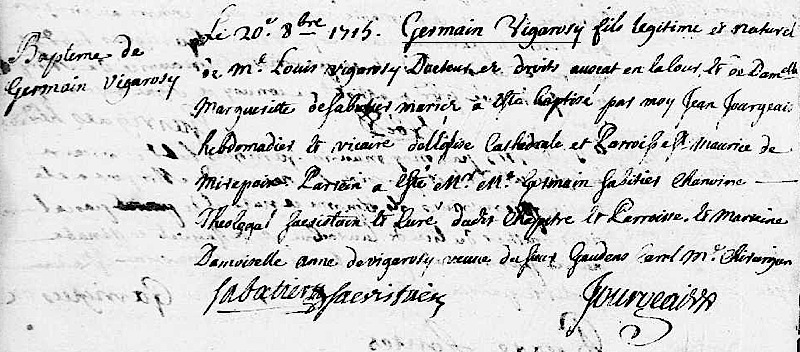 Bapteme de
Germain Vigarosy
Le 20e. 8bre 1715. Germain Vigarosy fils legitime et naturel
de Mr. Louis Vigarosy Docteur ez droits avocat en la Cour, & de Damelle
Marguerite de Sabatier mariez a esté baptisé par moy Jean Jourgeais
hebdomadier & vicaire de l'Eglise Cathedrale et Parroisse St Maurice de
Mirepoix. Parrain a esté Mr. Me. Germain Sabatier Chanoine
Theologal Sacristain & Curé dudit Chapitre & Parroisse. & Marreine
Damoiselle anne de vigarosy veuve du sieur Gaudens Carel Me. Chirurgien
Sabatier Sacristain
Jourgeais